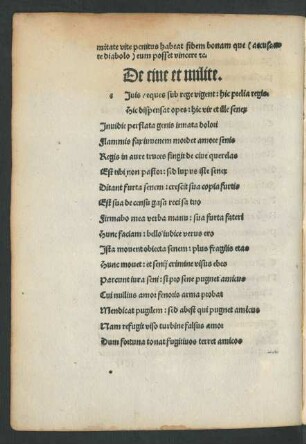 mitate vite penitus habeat fidem bonam que (accusan
te diabolo) eum posset vincere ⁊c.
De ciue et milite.
c Iuis / eques sub rege vigent: hic prelia regis.
Hic dispensat opes: hic vir et ille senex
Inuidie perflata genis innata dolori
Flammis fax iuuenem mordet amore senis
Regis in aure truces fingit de ciue querelas
Est tibi non pastor: sed lupus iste senex
Ditant furta senem: crescit sua copia furtis
Est sua de censu gaza reci sa tuo
Firmabo mea verba manu: sua furta fateri
Hunc faciam: bello iudice verus ero
Ista mouent obiecta senem: plus fragilis etas
Hunc mouet: et senij crimine visus ebes
Parcunt iura seni: si pro sene pugnet amicus
Cui nullius amor fenoris arma probat
Mendicat pugilem: sed abest qui pugnet amicus
Nam refugit viso turbine falsus amor
Dum fortuna tonat fugitiuos terret amicos